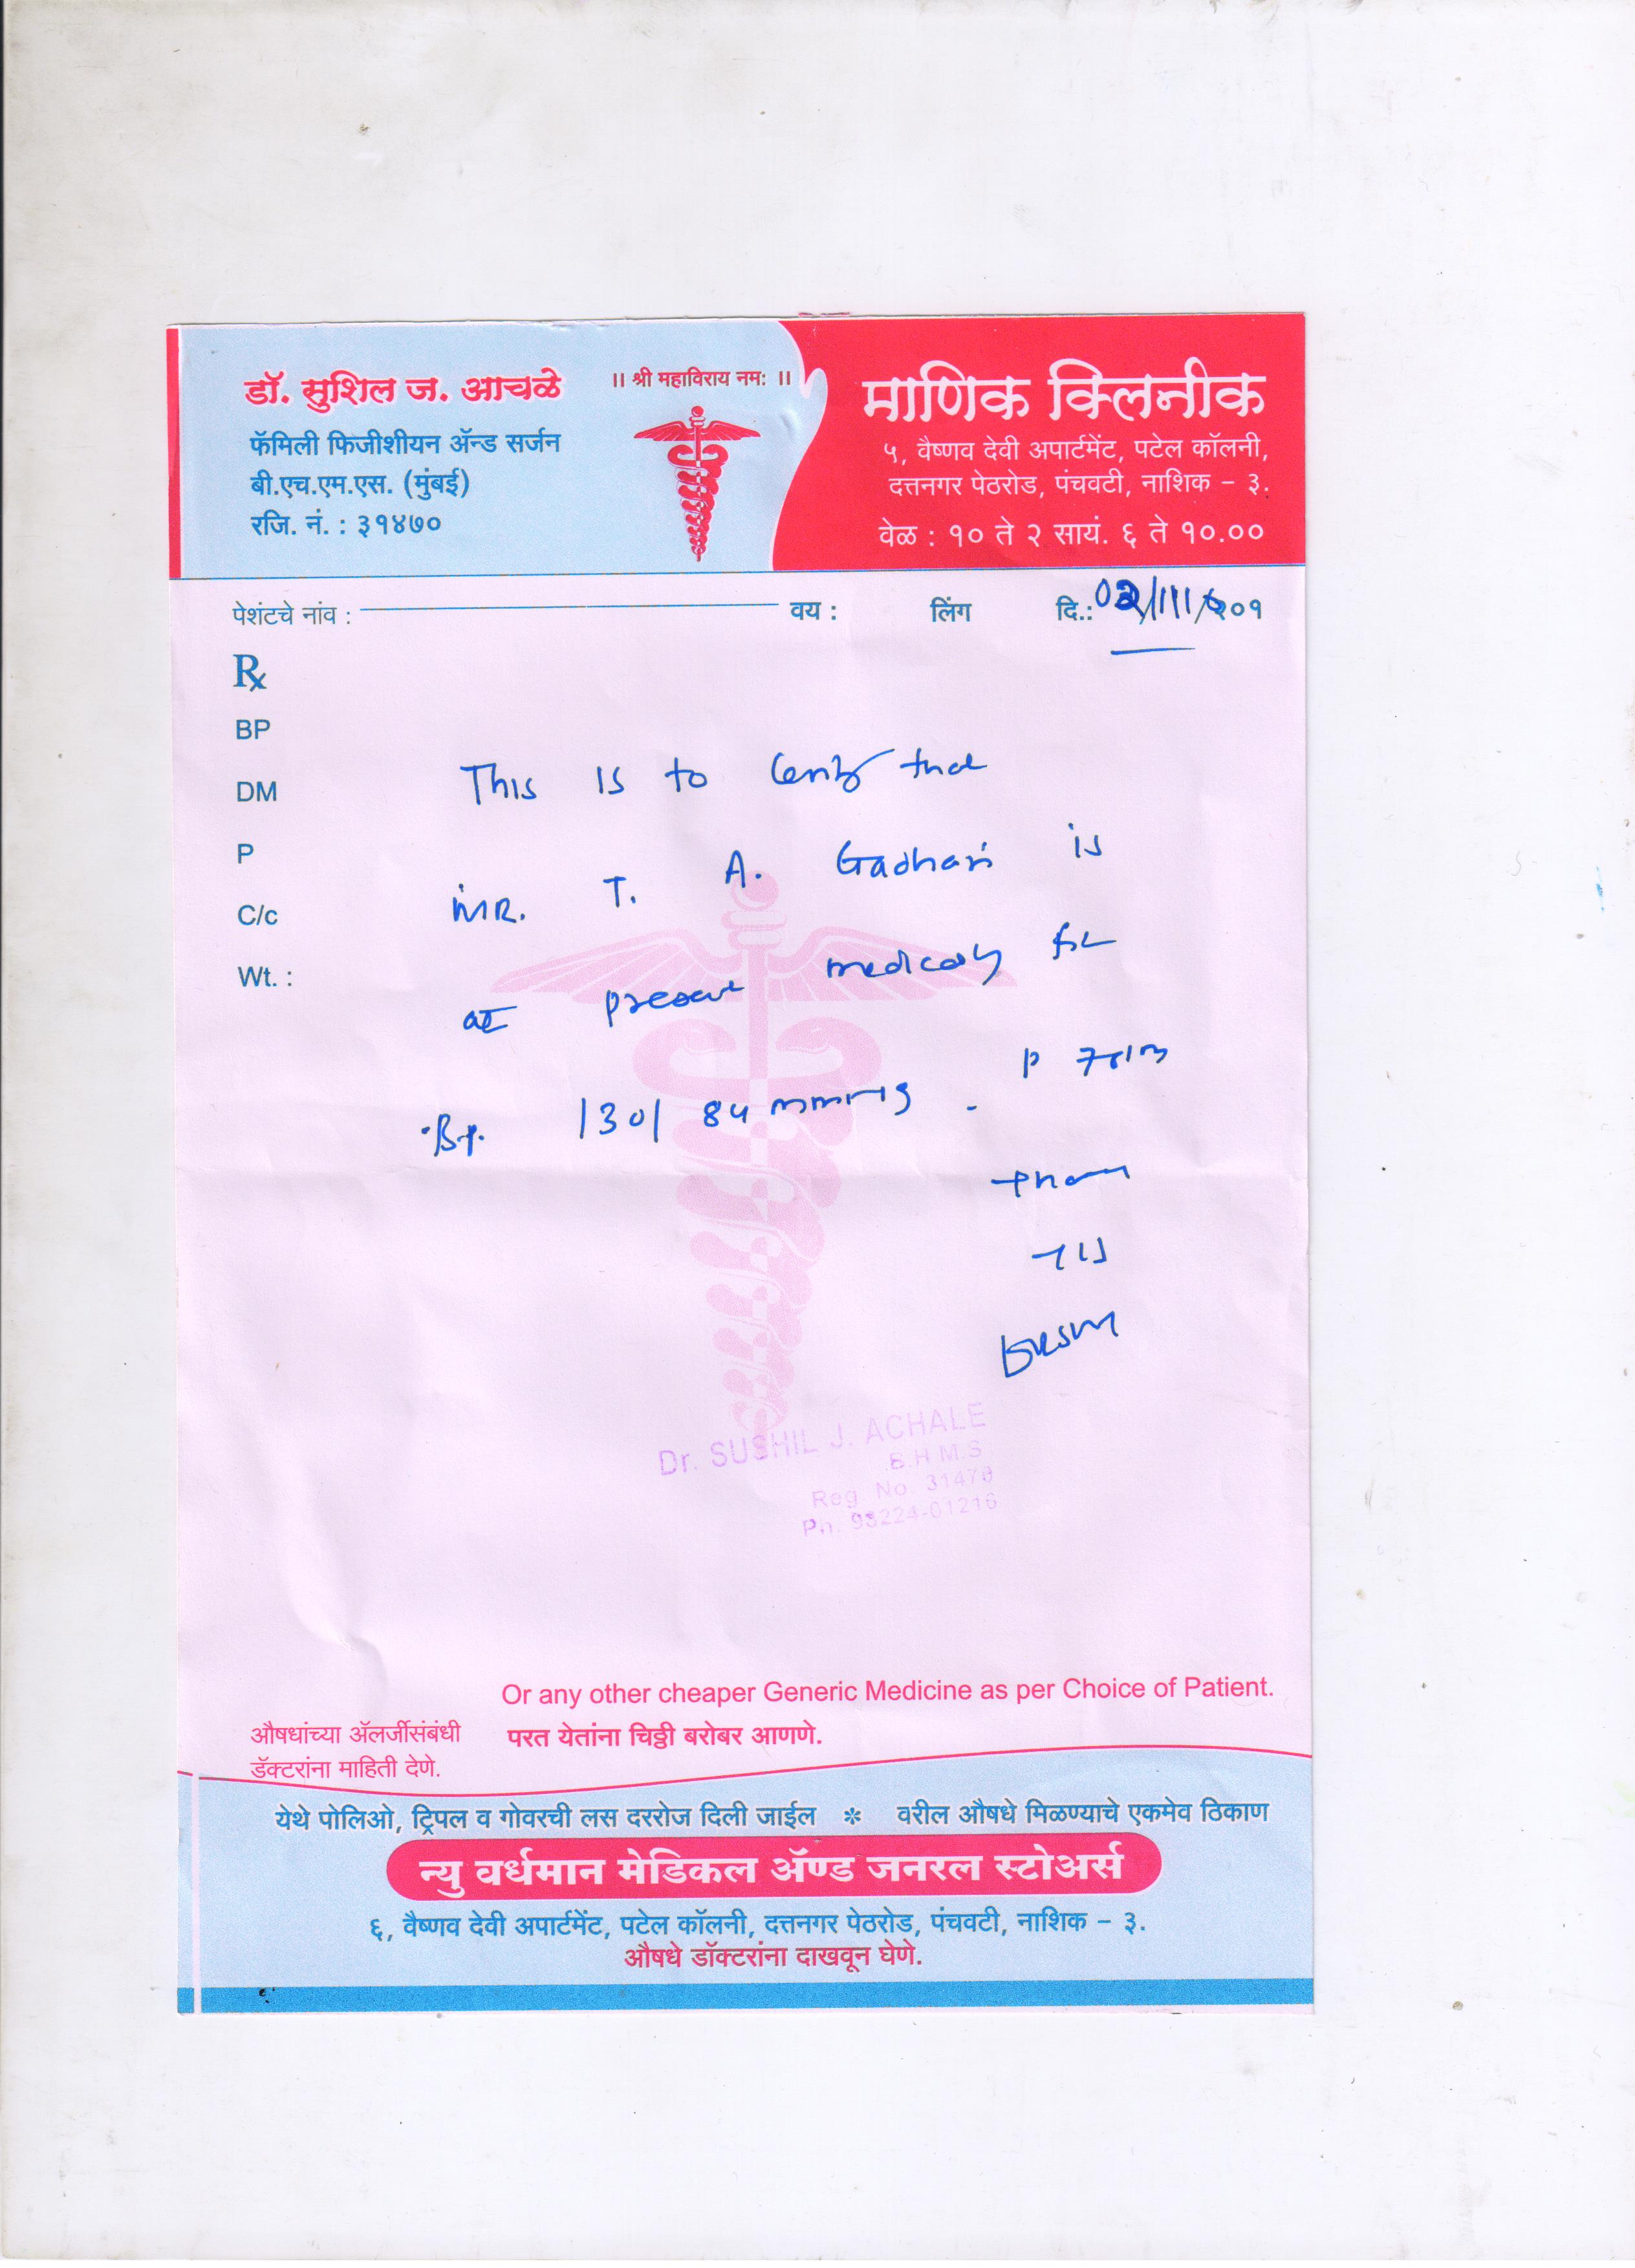 डॉ. सुशिल ज. आचळे
फॅमिली फिजीशीयन ॲन्ड सर्जन
बी.एच.एम.एस. (मुंबई)
रजि. नं. : ३१४७०
।। श्री महाविराय नम: ।।
माणिक क्लिनीक
५, वैष्णव देवी अपार्टमेंट, पटेल कॉलनी,
दत्तनगर पेठरोड, पंचवटी, नाशिक – ३.
वेळ : १० ते २ सायं. ६ ते १०.००
पेशंटचे नांव : वय : लिंग दि.: २०१
Rx
BP
DM
P
C/c
Wt. :
This is to certify that
MR. T. A. Gadhari is
at present medically fit
Bp. 130/84 mmHg. P
Dr. SUSHIL J. ACHALE
B.H.M.S
Reg. No. 31470
Ph. 98224-01216
Or any other cheaper Generic Medicine as per Choice of Patient.
औषधांच्या ॲलर्जीसंबंधी
डॅक्टरांना माहिती देणे.
परत येतांना चिठ्ठी बरोबर आणणे.
येथे पोलिओ, ट्रिपल व गोवरची लस दररोज दिली जाईल ✻ वरील औषधे मिळण्याचे एकमेव ठिकाण
न्यु वर्धमान मेडिकल ॲण्ड जनरल स्टोअर्स
६, वैष्णव देवी अपार्टमेंट, पटेल कॉलनी, दत्तनगर पेठरोड, पंचवटी, नाशिक – ३.
औषधे डॉक्टरांना दाखवून घेणे.